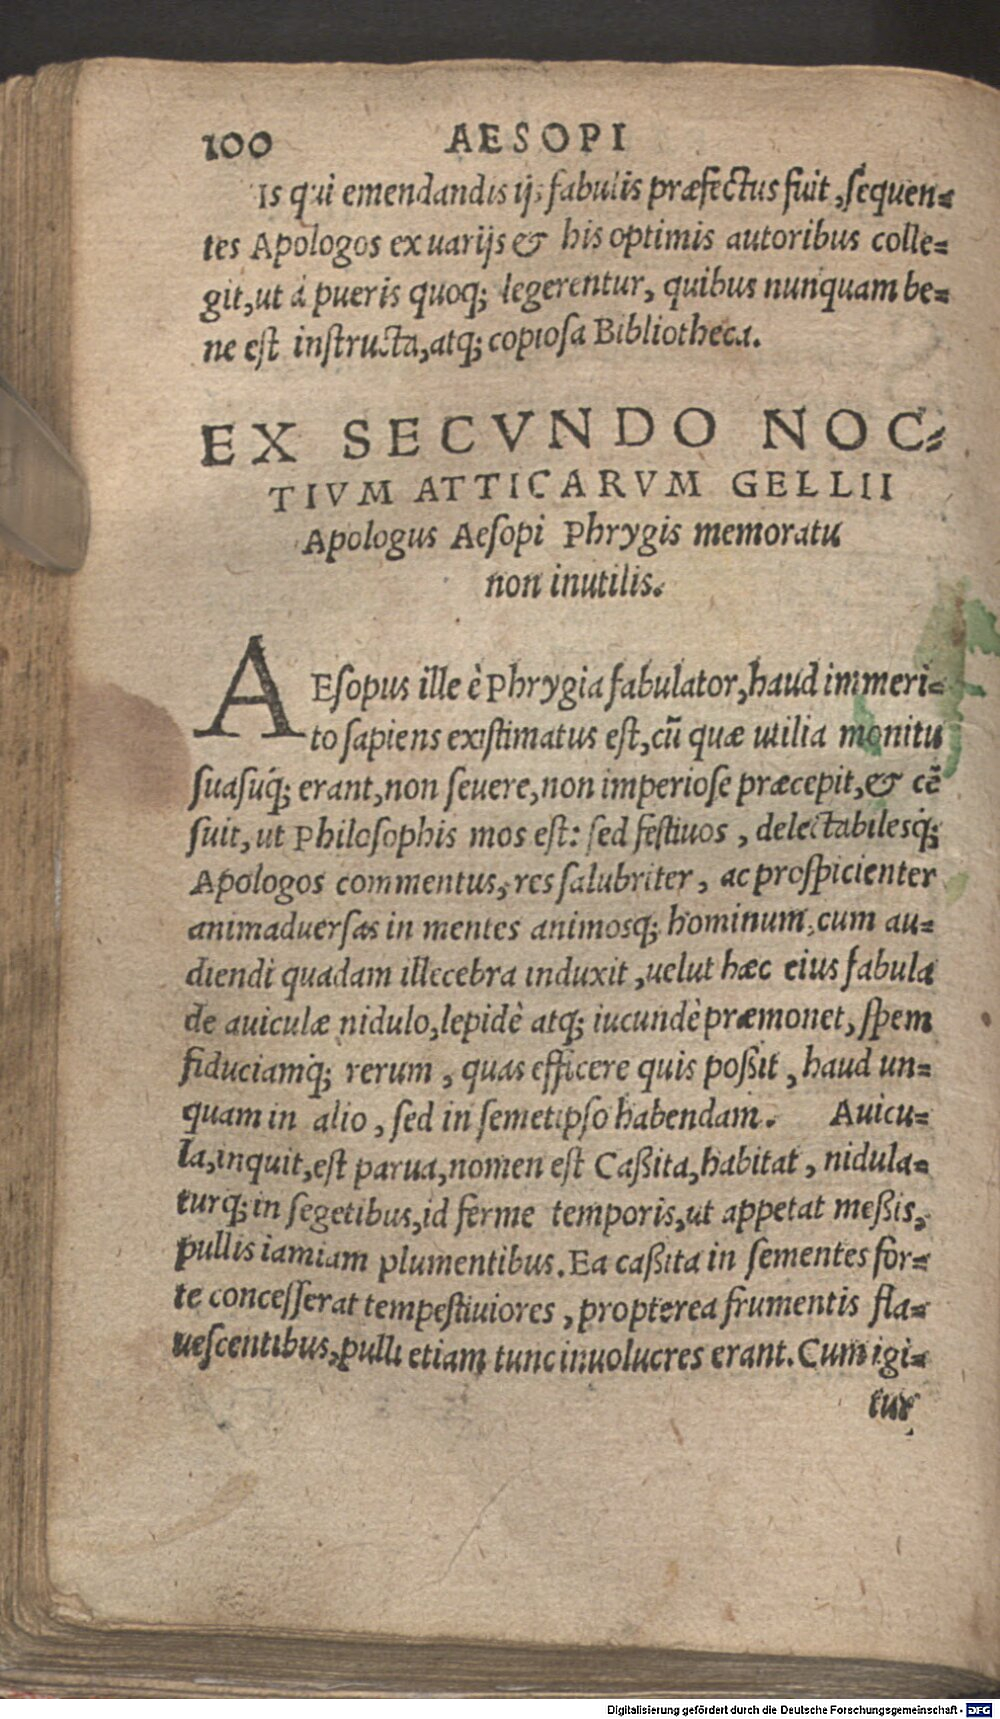 100 AESOPI
Is qui emendandis ijs fabulis præfectus fuit, sequen-
tes Apologos ex uarijs & his optimis autoribus colle-
git, ut à pueris quoq; legerentur, quibus nunquam be-
ne est instructa, atq; copiosa Bibliotheca.
EX SECVNDO NOC-
TIVM ATTICARVM GELLII
Apologus Aesopi Phrygis memoratu
non inutilis.
AEsopus ille è Phrygia fabulator, haud immeri-
to sapiens existimatus est, cũ quæ utilia monitu
suasúq; erant, non seuere, non imperiose præcepit, & cẽ
suit, ut Philosophis mos est: sed festiuos, delectabilesq;
Apologos commentus, res salubriter, ac prospicienter
animaduersas in mentes animosq; hominum, cum au-
diendi quadam illecebra induxit, uelut hæc eius fabula
de auiculæ nidulo, lepidè atq; iucundè præmonet, spem
fiduciamq; rerum, quas efficere quis poßit, haud un-
quam in alio, sed in semetipso habendam. Auicu-
la, inquit, est parua, nomen est Caßita, habitat, nidula-
turq; in segetibus, id ferme temporis, ut appetat meßis,
pullis iamiam plumentibus. Ea caßita in sementes for-
te concesserat tempestiuiores, propterea frumentis fla-
uescentibus, pulli etiam tunc inuolucres erant. Cum igi-
tur
Digitalisierung gefördert durch die Deutsche Forschungsgemeinschaft - DFG